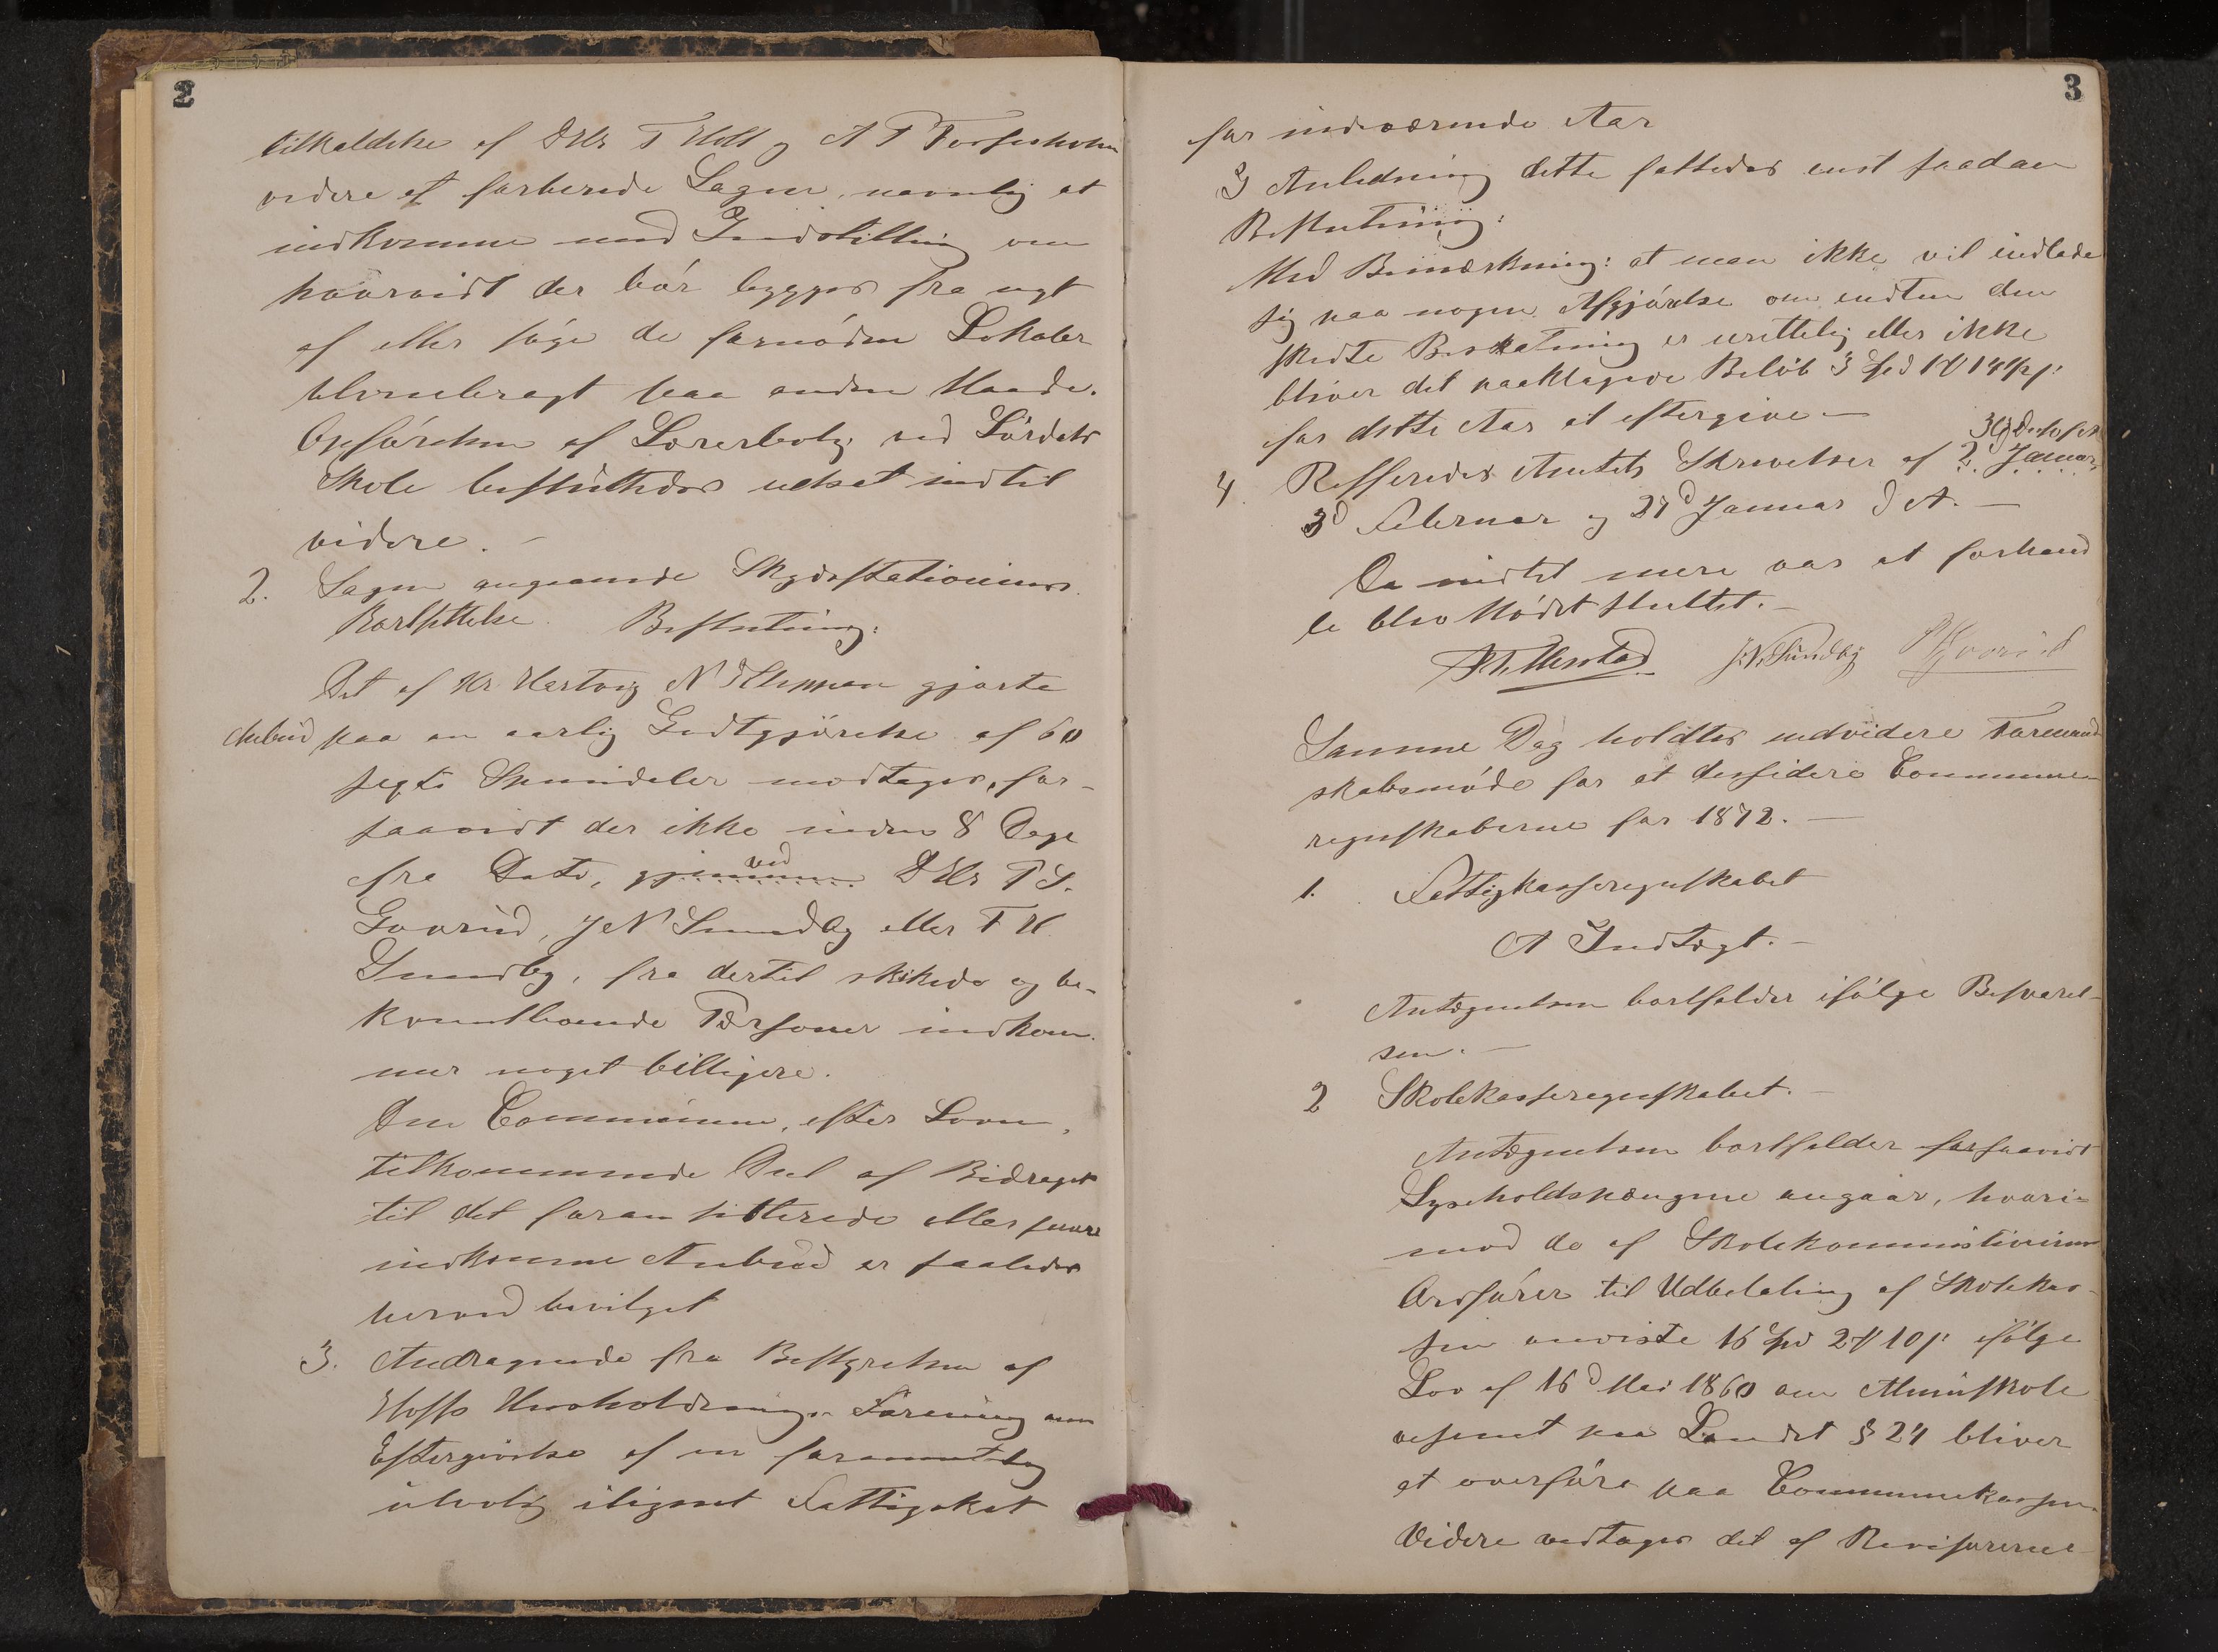 2
tilkaldelse af DHr T Hoff og A P Torfinsholm
videre at forberede Sagen, navnlig at
indkomme med Indstilling om
hvorvidt der bör bygges fra nyt
af eller söge de fornödne Lokaler
tilveiebragt paa anden Maade.
Opförelsen af Lærerbolig ved Sördals
Skole besluttedes udsat indtil
videre. –
2. Sagen angaaende Skydsstationens
Bortsættelse. Beslutning:
Det af Hr Hartvig N gjorte
Anbud paa en aarlig Godtgjörelse af 60
sexti Speciedaler modtages, for-
saavidt der ikke inden 8 Dage
fra Dato, gjennem ved DHr P S.
Govrud, J N Sundby eller T H
Sundby, fra dertil skikede og be-
kvemtboende Personer indkom-
mer noget billigere.
Den Communen, efter Loven,
tilkommende Deel af Bidraget
til det foran siterede eller senere
indkomne Anbud er saaledes
herved bevilget
3. Andragende fra Bestyrelsen af
Hoffs Huusholdnings-Forening om
Eftergivelse af en formentlig
ulovlig ilignet Fattigskat
3
for indeværende Aar
I Anledning dette fattedes eenst saadan
Beslutning:
Med Bemærkning: at man ikke vil indlade
sig paa nogen Afgjörelse om endten den
skedte Beskatning er urettelig eller ikke
bliver det paaklagede Belöb 3 Spd 1 14 s
for dette Aar at eftergive –
4. Reffereredes Amtets Skrivelser af 2 Januar,
3d Februar og 27d Januar d A. –
Da indtet mere var at forhand
le blev Mödet sluttet. –
J.N. Sundby Govrud
Samme Dag holdtes endvidere Formand
skabsmöde for at desidere Commune
regnskaberne for 1872. –
1. Fattigkasseregnskabet
A Indtægt. –
Antegnelsen bortfalder ifölge Besvarel-
sen. –
2 Skolekasseregnskabet. –
Antegnelsen bortfalder forsaavidt
Lyseholdspengene angaar, hvori-
mod de af Skolekommistionens
Ordförer til Udbetaling af Skolekas-
sen anviste 16 Spd 2 10 s ifölge
Lov af 16d Mai 1860 om Almuskole
vesenet paa Landet § 24 bliver
at overföre paa Communekassen.
Videre vedtages det af Revisorerne